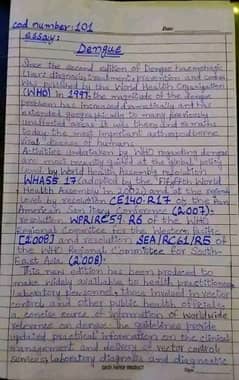 cod number:101
Essay:
Dengue
Since the second edition of Dengue haemorrhagic
fever: diagnosis, treatment, prevention and control
was published by the World Health Organization
(WHO) In 1997, the magnitude of the dengue
problem has increased dramatically and has
extended geographically to many previously
unaffected areas. It was then, and remains
today, the most important arthropod-borne
viral disease of humans.
Activities undertaken by WHO regarding dengue
are most recently guided at the global policy
by World Health Assembly resolution
WHA55.17 (adopted by the Fifty-fifth World
Health Assembly in 2002) and at the regional
level by resolution CE140.R17 of the Pan
American Conference (2007),
resolution WPR/RC59.R6 of the WHO
Regional Committee for the Western Pacific
[2008] and resolution SEA/RC61/R5 of
the WHO Regional Committee for South-
East Asia (2008).
This new edition has been produced to
make widely available to health practitioners,
laboratory personnel, those involved in vector
control and other public health officials,
a concise source of information of worldwide
relevance on dengue. The guidelines provide
updated practical information on the clinical
management and delivery of vector control
services; laboratory diagnosis and diagnostic